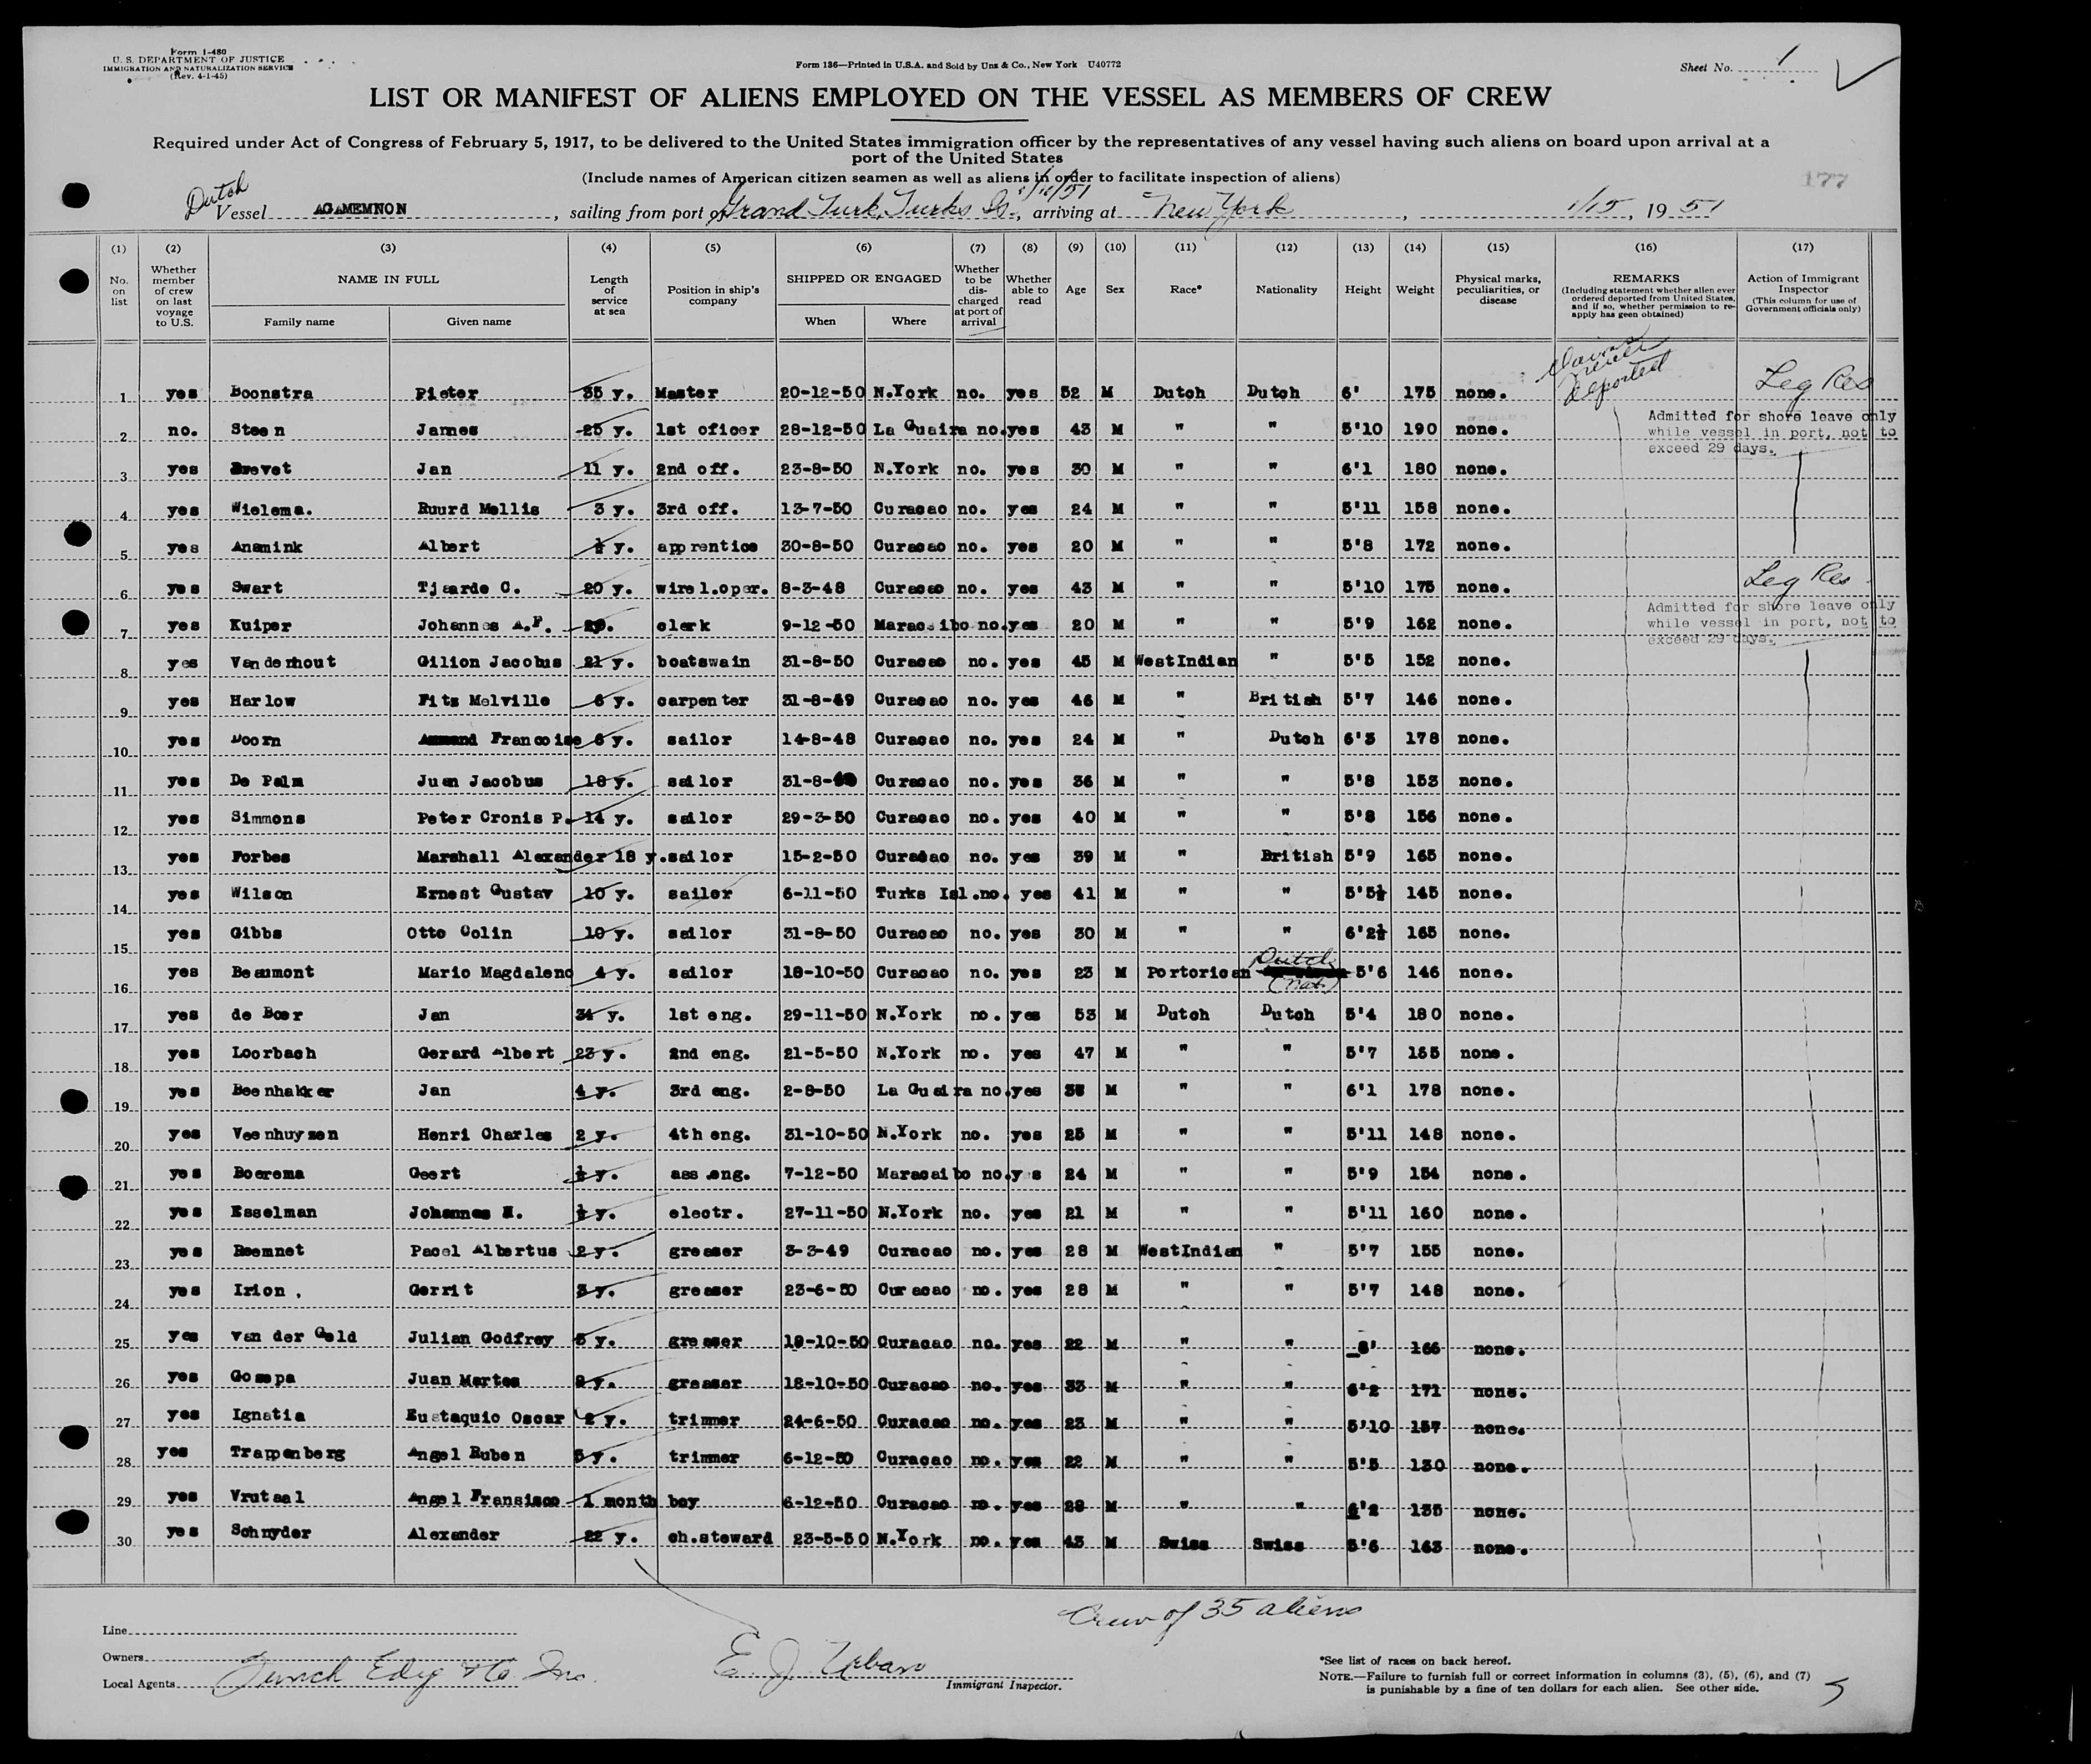 Form I-480
U. S. DEPARTMENT OF JUSTICE
IMMIGRATION AND NATURALIZATION SERVICE
(Rev. 4-1-45)
Form 136—Printed in U.S.A. and Sold by Unz & Co., New York U40772
Sheet No. 1
LIST OR MANIFEST OF ALIENS EMPLOYED ON THE VESSEL AS MEMBERS OF CREW
Required under Act of Congress of February 5, 1917, to be delivered to the United States immigration officer by the representatives of any vessel having such aliens on board upon arrival at a
port of the United States
(Include names of American citizen seamen as well as aliens in order to facilitate inspection of aliens)
177
Dutch
1/10/51
Vessel AGAMEMNON , sailing from port of Grand Turk, Turks Is., arriving at New York , 1/15 , 19 51
(1) (2) (3) (4) (5) (6) (7) (8) (9) (10) (11) (12) (13) (14) (15) (16) (17)
No. on list
Whether member of crew on last voyage to U.S.
NAME IN FULL
Family name
Given name
Length of service at sea
Position in ship's company
SHIPPED OR ENGAGED
When
Where
Whether to be discharged at port of arrival
Whether able to read
Age
Sex
Race*
Nationality
Height
Weight
Physical marks, peculiarities, or disease
REMARKS
(Including statement whether alien ever ordered deported from United States, and if so, whether permission to re-apply has geen obtained)
Action of Immigrant Inspector
(This column for use of Government officials only)
never
Deported
1 yes Boonstra Pieter 35 y. Master 20-12-50 N.York no. yes 52 M Dutch Dutch 6' 175 none. Leg Res
2 no. Steen James 25 y. 1st oficer 28-12-50 La Guaira no. yes 43 M " " 5'10 190 none.
Admitted for shore leave only
while vessel in port, not to
exceed 29 days.
3 yes Brevet Jan 11 y. 2nd off. 23-8-50 N.York no. yes 30 M " " 6'1 180 none.
4 yes Wielema. Ruurd Mellis 3 y. 3rd off. 13-7-50 Curacao no. yes 24 M " " 5'11 158 none.
5 yes Anamink Albert ½ y. apprentice 30-8-50 Curacao no. yes 20 M " " 5'8 172 none.
6 yes Swart Tjaarde C. 20 y. wirel.oper. 8-3-48 Curacao no. yes 43 M " " 5'10 175 none. Leg Res
Admitted for shore leave only
while vessel in port, not to
exceed 29 days.
7 yes Kuiper Johannes A.F. clerk 9-12-50 Maracaibo no. yes 20 M " " 5'9 162 none.
8 yes Vanderhout Gilion Jacobus 21 y. boatswain 31-8-50 Curacao no. yes 45 M WestIndian " 5'5 152 none.
9 yes Harlow Fitz Melville 6 y. carpenter 31-8-49 Curacao no. yes 46 M " British 5'7 146 none.
10 yes Doorn Armand Francoise 6 y. sailor 14-8-48 Curacao no. yes 24 M " Dutch 6'3 178 none.
11 yes De Palm Juan Jacobus 18 y. sailor 31-8- Curacao no. yes 36 M " " 5'8 153 none.
12 yes Simmons Peter Cronis P. 14 y. sailor 29-3-50 Curacao no. yes 40 M " " 5'8 156 none.
13 yes Forbes Marshall Alexander 18 y. sailor 15-2-50 Curacao no. yes 39 M " British 5'9 165 none.
14 yes Wilson Ernest Gustav 10 y. sailor 6-11-50 Turks Isl. no. yes 41 M " " 5'5½ 145 none.
15 yes Gibbs Otto Colin 10 y. sailor 31-8-50 Curacao no. yes 30 M " " 6'2½ 165 none.
16 yes Beaumont Mario Magdaleno 4 y. sailor 18-10-50 Curacao no. yes 23 M Portorican Dutch (nat.) 5'6 146 none.
17 yes de Boer Jan 34 y. 1st eng. 29-11-50 N.York no. yes 53 M Dutch Dutch 5'4 180 none.
18 yes Loorbach Gerard Albert 23 y. 2nd eng. 21-5-50 N.York no. yes 47 M " " 5'7 155 none.
19 yes Beenhakker Jan 4 y. 3rd eng. 2-8-50 La Guaira no. yes M " " 6'1 178 none.
20 yes Veenhuysen Henri Charles 2 y. 4th eng. 31-10-50 N.York no. yes 25 M " " 5'11 148 none.
21 yes Boerema Geert ½ y. ass.eng. 7-12-50 Maracaibo no. y s 24 M " " 5'9 154 none.
22 yes Esselman Johannes H. ½ y. electr. 27-11-50 N.York no. yes 21 M " " 5'11 160 none.
23 yes Beemnet Pacel Albertus 2 y. greaser 3-3-49 Curacao no. yes 28 M WestIndian " 5'7 155 none.
24 yes Irion. Gerrit 3 y. greaser 23-6-50 Curacao no. yes 28 M " " 5'7 148 none.
25 yes van der Geld Julian Godfrey 5 y. greaser 18-10-50 Curacao no. yes 22 M " " 6' 166 none.
26 yes Gomepa Juan Martes 2 y. greaser 18-10-50 Curacao no. yes 33 M " " 6'2 171 none.
27 yes Ignatia Eustaquio Oscar 2 y. trimmer 24-6-50 Curacao no. yes 23 M " " 5'10 157 none.
28 yes Trappenberg Angel Ruben 5 y. trimmer 6-12-50 Curacao no. yes 22 M " " 5'5 130 none.
29 yes Vrutaal Angel Fransisco 1 month boy 6-12-50 Curacao no. yes 28 M " " 6'2 135 none.
30 yes Schnyder Alexander 22 y. ch.steward 23-5-50 N.York no. yes 43 M Swiss Swiss 5'6 163 none.
Crew of 35 aliens
Line
Owners
Local Agents Funch Edye & Co. Inc.
E. J. Urban
Immigrant Inspector.
*See list of races on back hereof.
NOTE.—Failure to furnish full or correct information in columns (3), (5), (6), and (7)
is punishable by a fine of ten dollars for each alien. See other side.
5